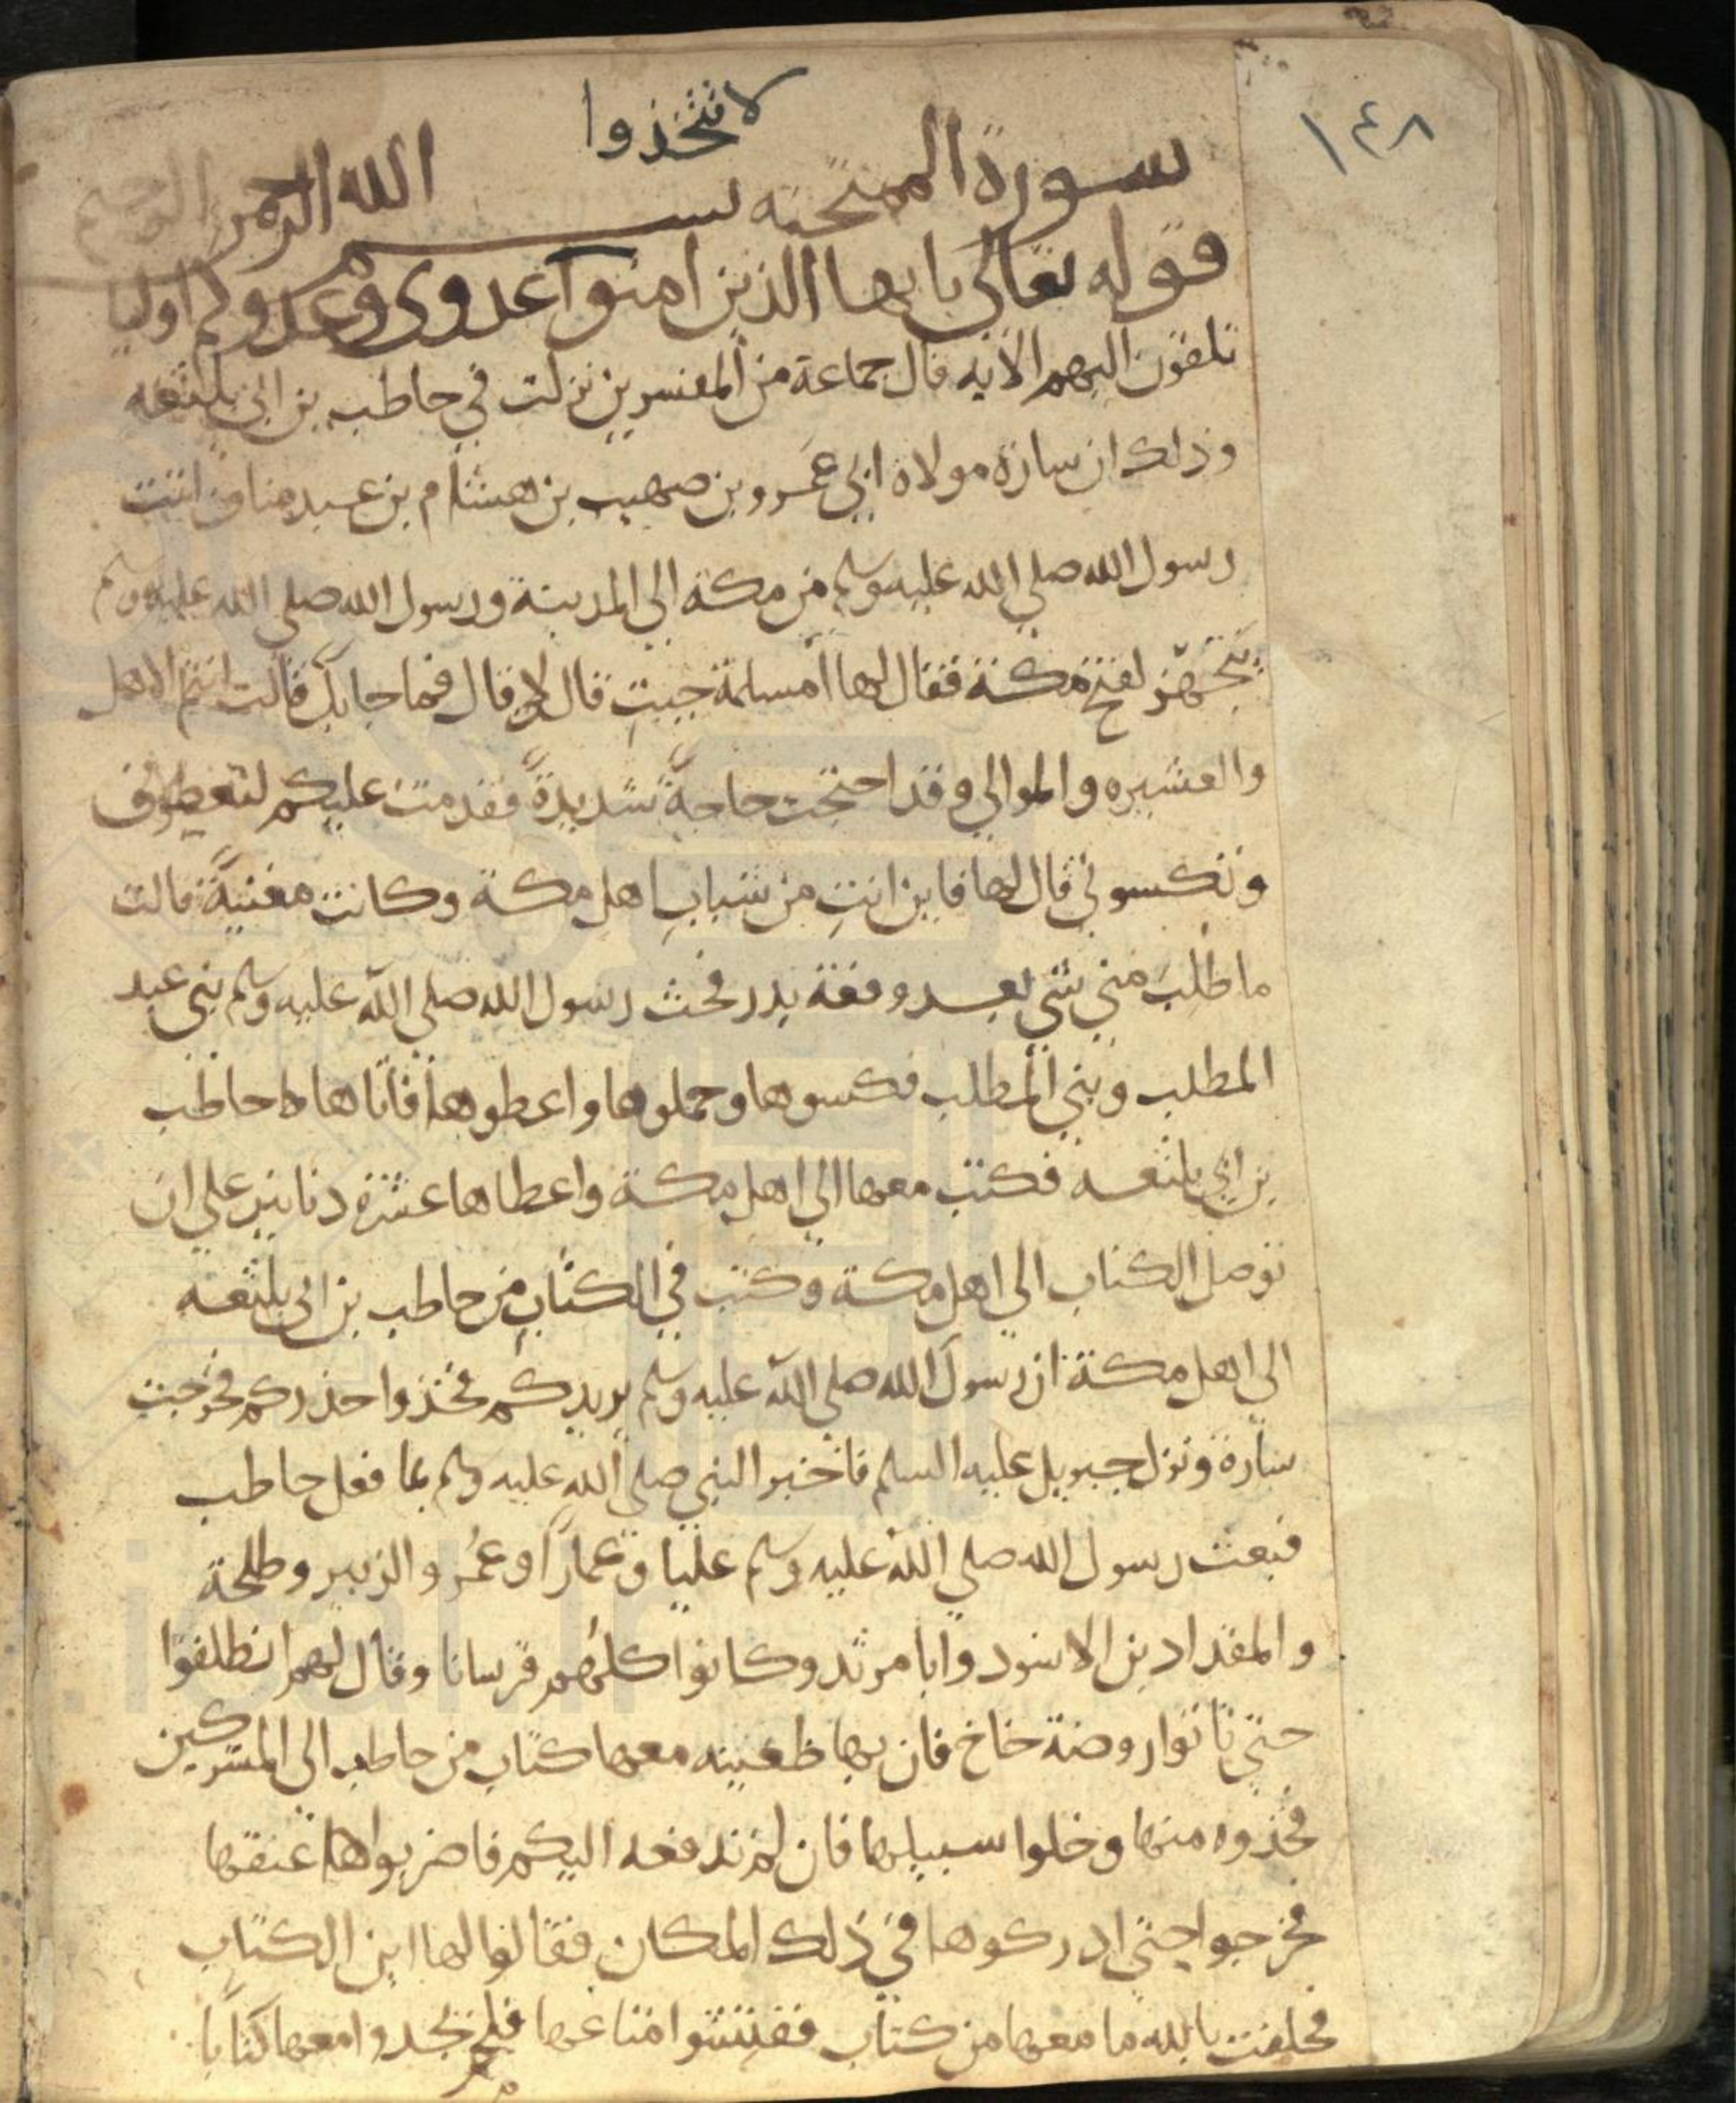 ١٤٨
لا تتخذوا
سورة الممتحنه بسم الله الرحمن الرحيم
قوله تعالى يا يها الذين امنوا عدوى وعدوكم اوليا
تلقون اليهم الايه قال جماعة من المفسرين نزلت في حاطب بن ابى بلتعه
وذلك ان سارة مولاة ابي عمرو بن صهيب بن هشام بن عبد مناف اتت
رسول الله صلي الله عليه وسلم من مكة الي المدينة ورسول الله صلي الله عليه وسلم
يتجهز لفتح مكة فقال لها أمسلمة جيتِ قال لا قال فما جا بك قالت انتم الاهل
والعشيره والموالي وقد احتجت حاجةً شديدةً فقدمت عليكم لتعطوني
وتكسوني قال لها فاين انتِ من شباب اهل مكة وكانت مغنيةً قالت
ما طُلبَ مني شي بعد وقعة بدر فحث رسول الله صلي الله عليه وسلم بني عبد
المطلب وبني المطلب فكسوها وحملوها واعطوها فاتاها حاطب
بن ابي بلتعه فكتب معها الي اهل مكة واعطاها عشرة دنانير علي ان
توصل الكتاب الي اهل مكة وكتب في الكتاب من حاطب بن ابي بلتعه
الى اهل مكة ان رسول الله صلي الله عليه وسلم يريدكم فخذوا حذركم فخرجت
سارة ونزل جبريل عليه السلم فاخبر النبي صلي الله عليه وسلم بما فعل حاطب
فبعث رسول الله صلي الله عليه وسلم عليا وعماراً وعُمر والزبير وطلحة
والمقداد بن الاسود وابا مرثد وكانوا كلهم فرسانا وقال لهم انطلقوا
حتي تاتوا روضة خاخ فان بها ظعينه معها كتاب من حاطب الى المشركين
فخذوه منها وخلوا سبيلها فان لم تدفعه اليكم فاضربوا عنقها
فخرجوا حتي ادركوها في ذلك المكان فقالوا لها اين الكتاب
فحلفت بالله ما معها من كتاب ففتشوا متاعها فلم يجدوا معها كتابا